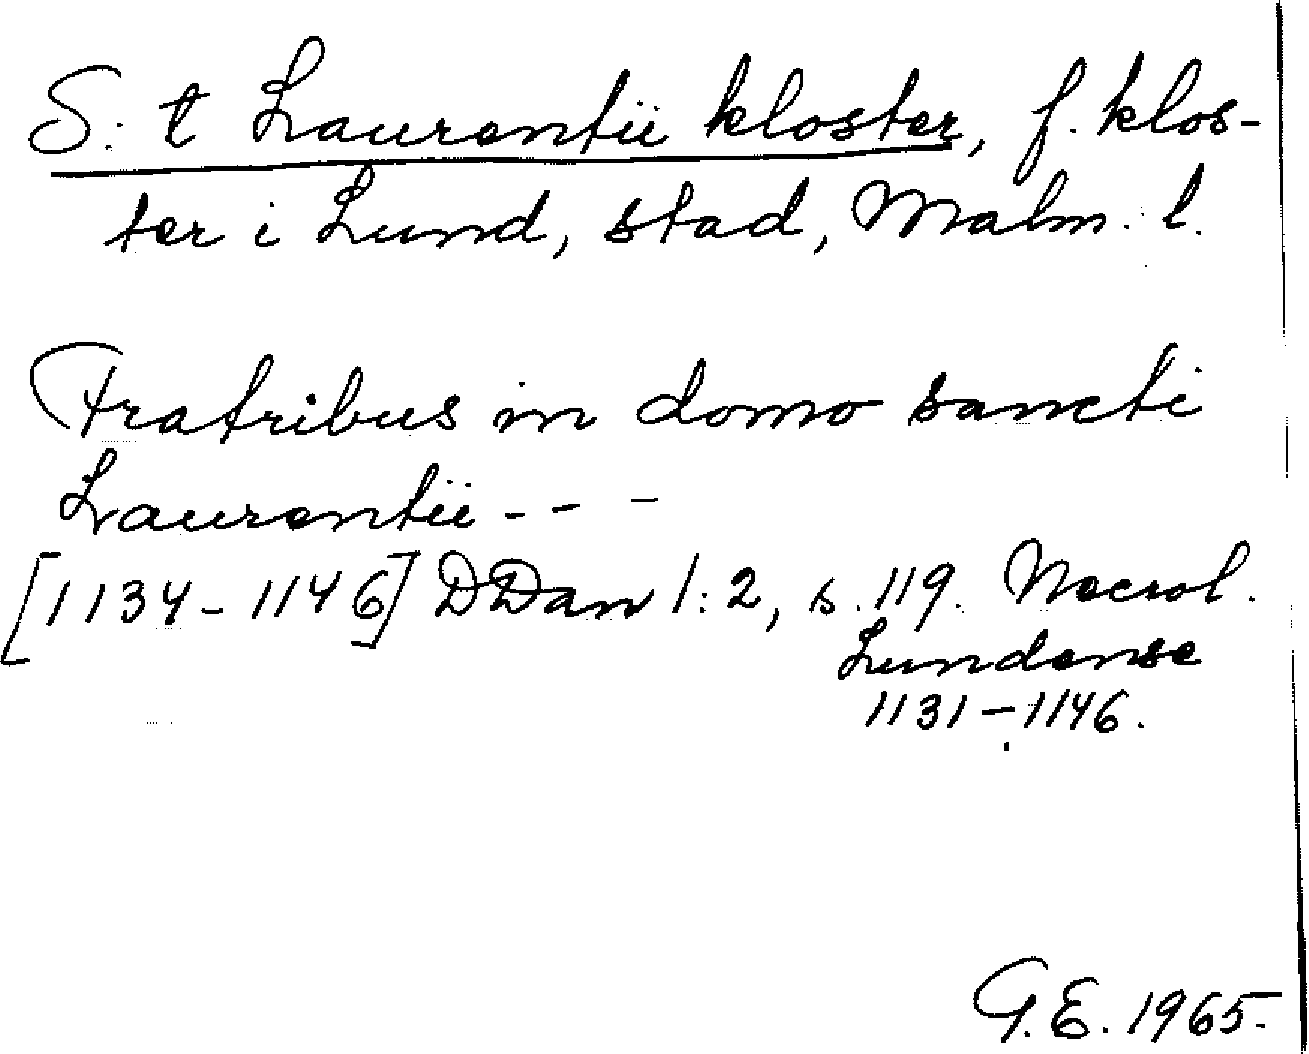 S:t Laurentii kloster, f. klos-
ter i Lund, stad, Malm. l.
Fratribus in domo sancti
Laurentii - - -
[1134-1146] DDan 1:2, s. 119. Necrol.
Lundense
1131-1146.
G.E. 1965.